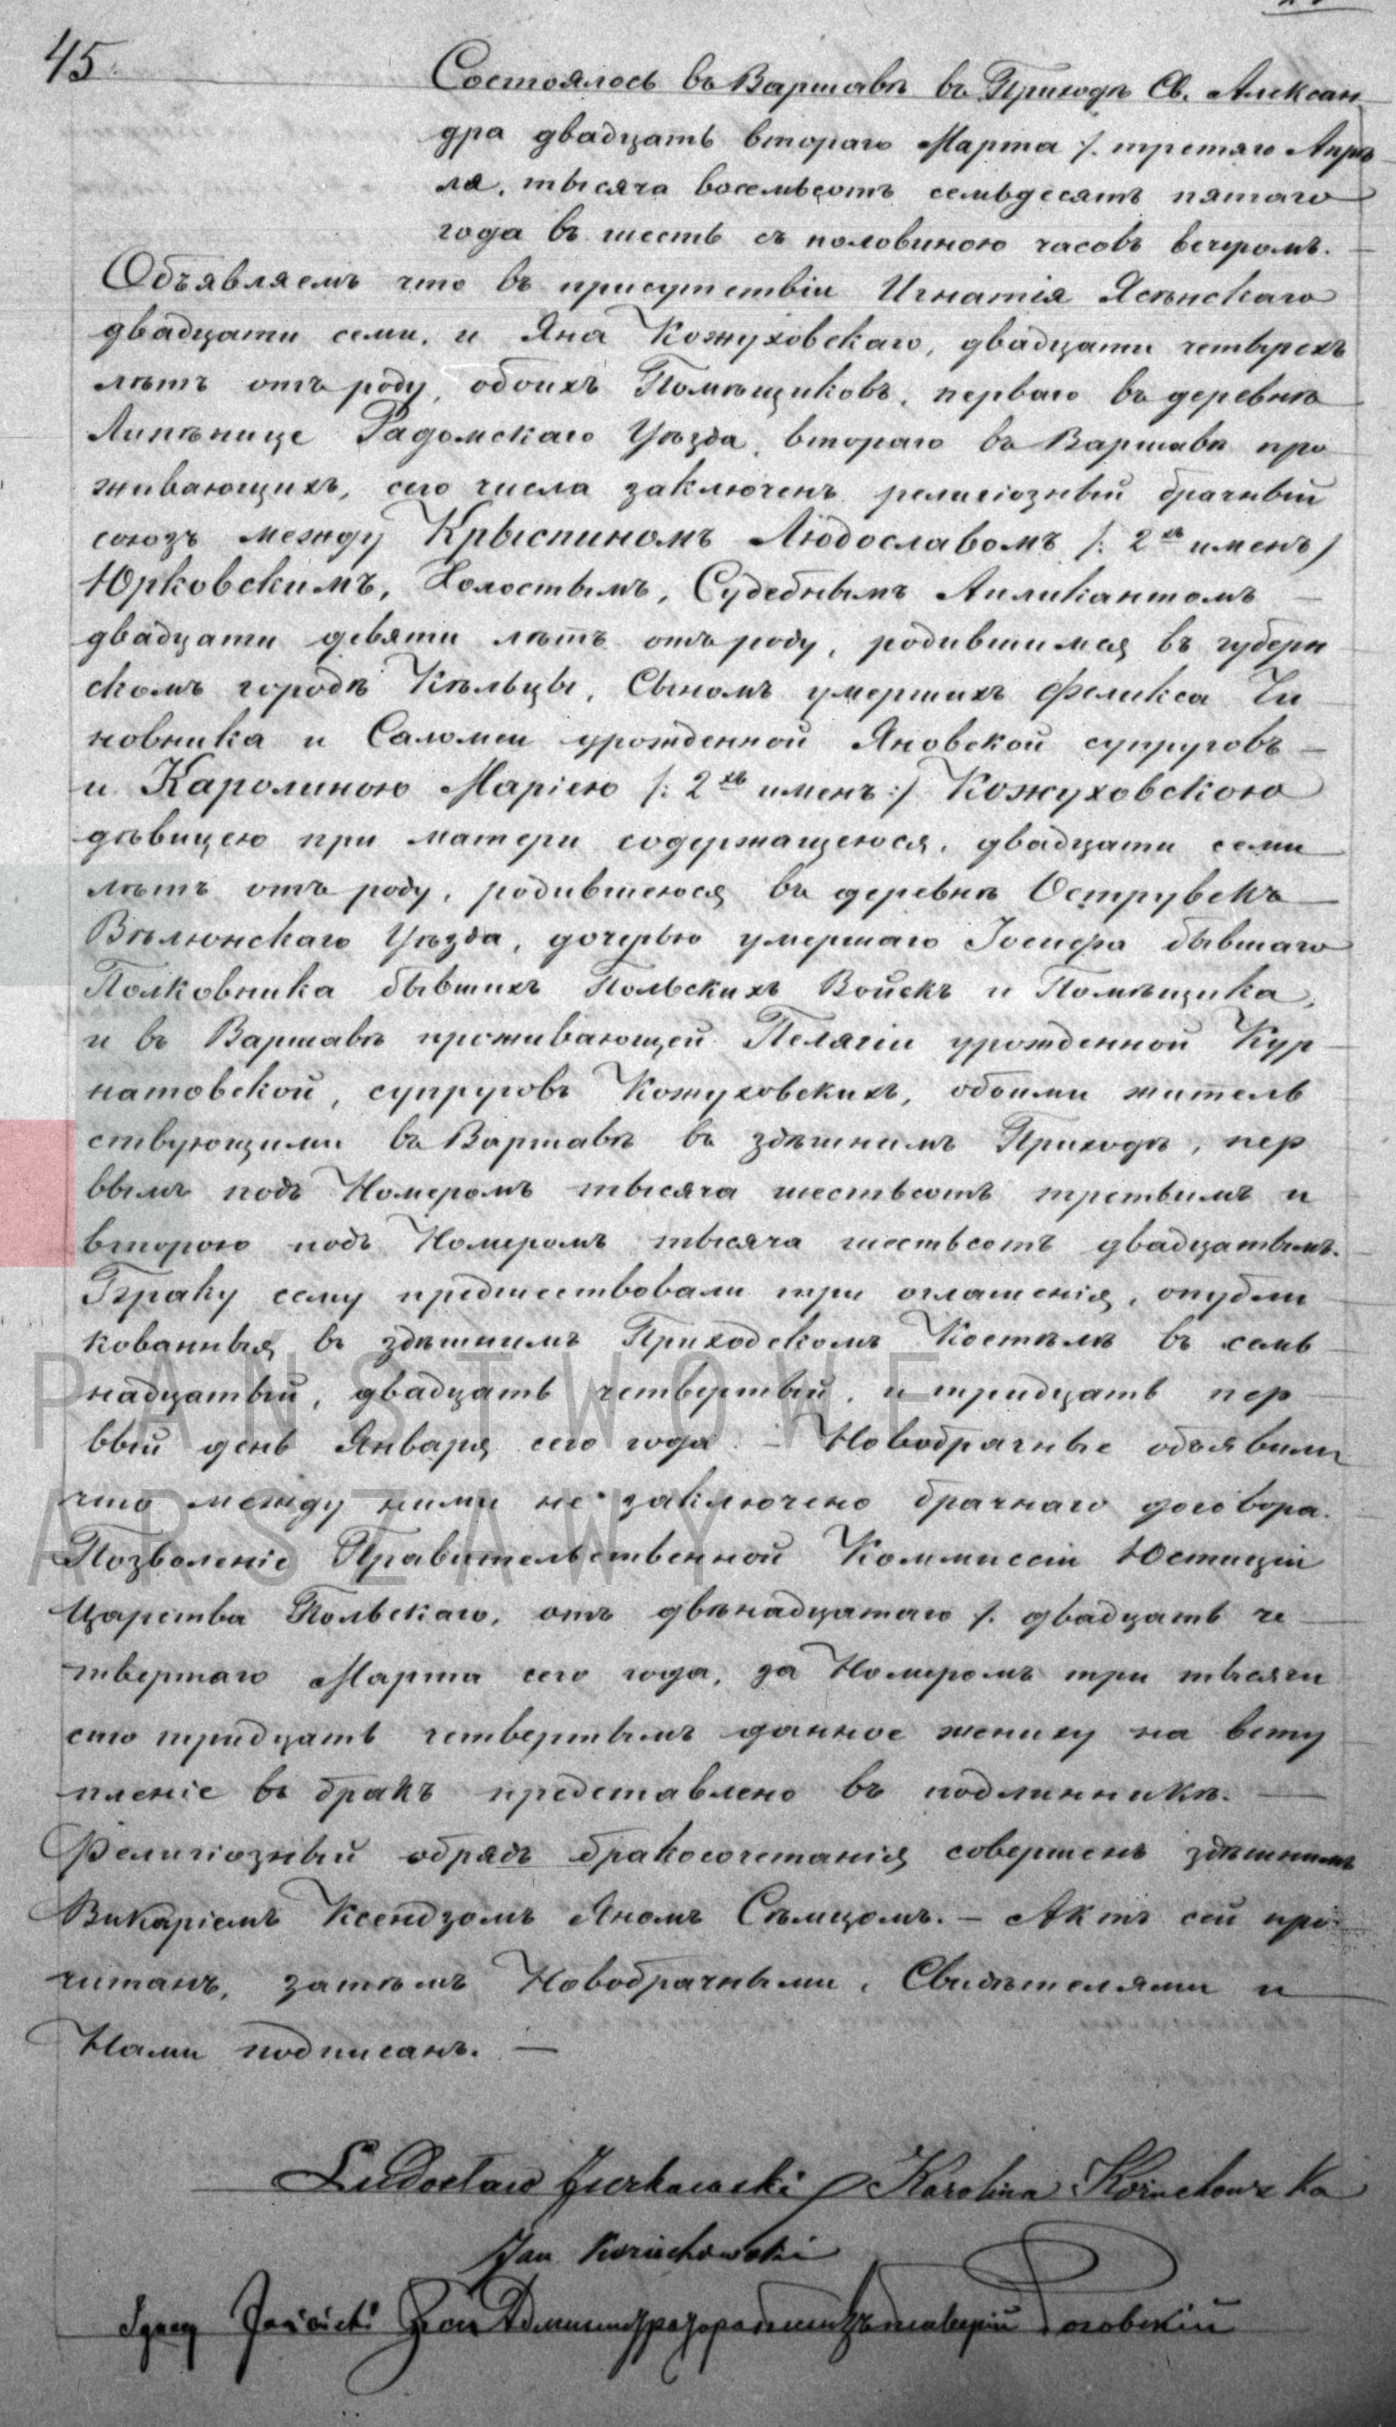 45.
Состоялось въ Варшавѣ въ Приходѣ Св. Алексан
дра двадцать втораго Марта /. третяго Апрѣ
ля, тысяча восемьсотъ семьдесятъ пятаго
года въ шесть съ половиною часовъ вечеромъ. —
Объявляемъ что въ присутствіи Игнатія Ясѣнскаго
двадцати семи, и Яна Кожуховскаго, двадцати четырехъ
лѣтъ отъ роду, обоихъ Помѣщиковъ, перваго въ деревнѣ
Липѣнице Радомскаго Уѣзда, втораго въ Варшавѣ про
живающихъ, сего числа заключенъ религіозный брачный
союзъ между Крыспиномъ Людославомъ /: 2хъ именъ /
Юрковскимъ, Холостымъ, Судебнымъ Апликантомъ —
двадцати девяти лѣтъ отъ роду, родившимся въ губерн
скомъ городѣ Кѣльцы, Сыномъ умершихъ Феликса Чи
новника и Саломеи урожденной Яновской супруговъ —
и Каролиною Маріею /: 2хъ именъ :/ Кожуховскою
дѣвицею при матери содержащеюся, двадцати семи
лѣтъ отъ роду, родившеюся въ деревнѣ Острувекъ
Вѣлюнскаго Уѣзда, дочерью умершаго Іосифа бывшаго
Полковника бывшихъ Польскихъ Войскъ и Помѣщика,
и въ Варшавѣ проживающей Пелягіи урожденной Кур
натовской, супруговъ Кожуховскихъ, обоими житель
ствующими въ Варшавѣ въ здѣшнимъ Приходѣ, пер
вымъ подъ Номеромъ тысяча шестьсотъ третьимъ и
второю подъ Номеромъ тысяча шестьсотъ двадцатымъ.
Браку сему предшествовали три оглашенія, опубли
кованныя въ здѣшнимъ Приходскомъ Костѣлѣ въ семь
надцатый, двадцать четвертый, и тридцать пер
вый день Января сего года. — Новобрачные объявили
что между ними не заключено брачнаго договора.
Позволеніе Правительственной Коммиссіи Юстиціи
Царства Польскаго, отъ двѣнадцатаго /. двадцать че
твертаго Марта сего года, за Номеромъ три тысячи
сто тридцать четвертымъ данное жениху на всту
пленіе въ бракъ представлено въ подлинникѣ. —
Религіозный обрядъ бракосочетанія совершенъ здѣшнимъ
Викаріемъ Ксендзомъ Яномъ Сѣмцомъ. — Актъ сей про
читанъ, затѣмъ Новобрачными, Свидѣтелями и
Нами подписанъ. —
Ludosław Jurkowski Karolina Kożuchowska
Jan Kożuchowski
Ignacy Jasieński Роговскій
PAŃSTWOWE
ARSZAWY